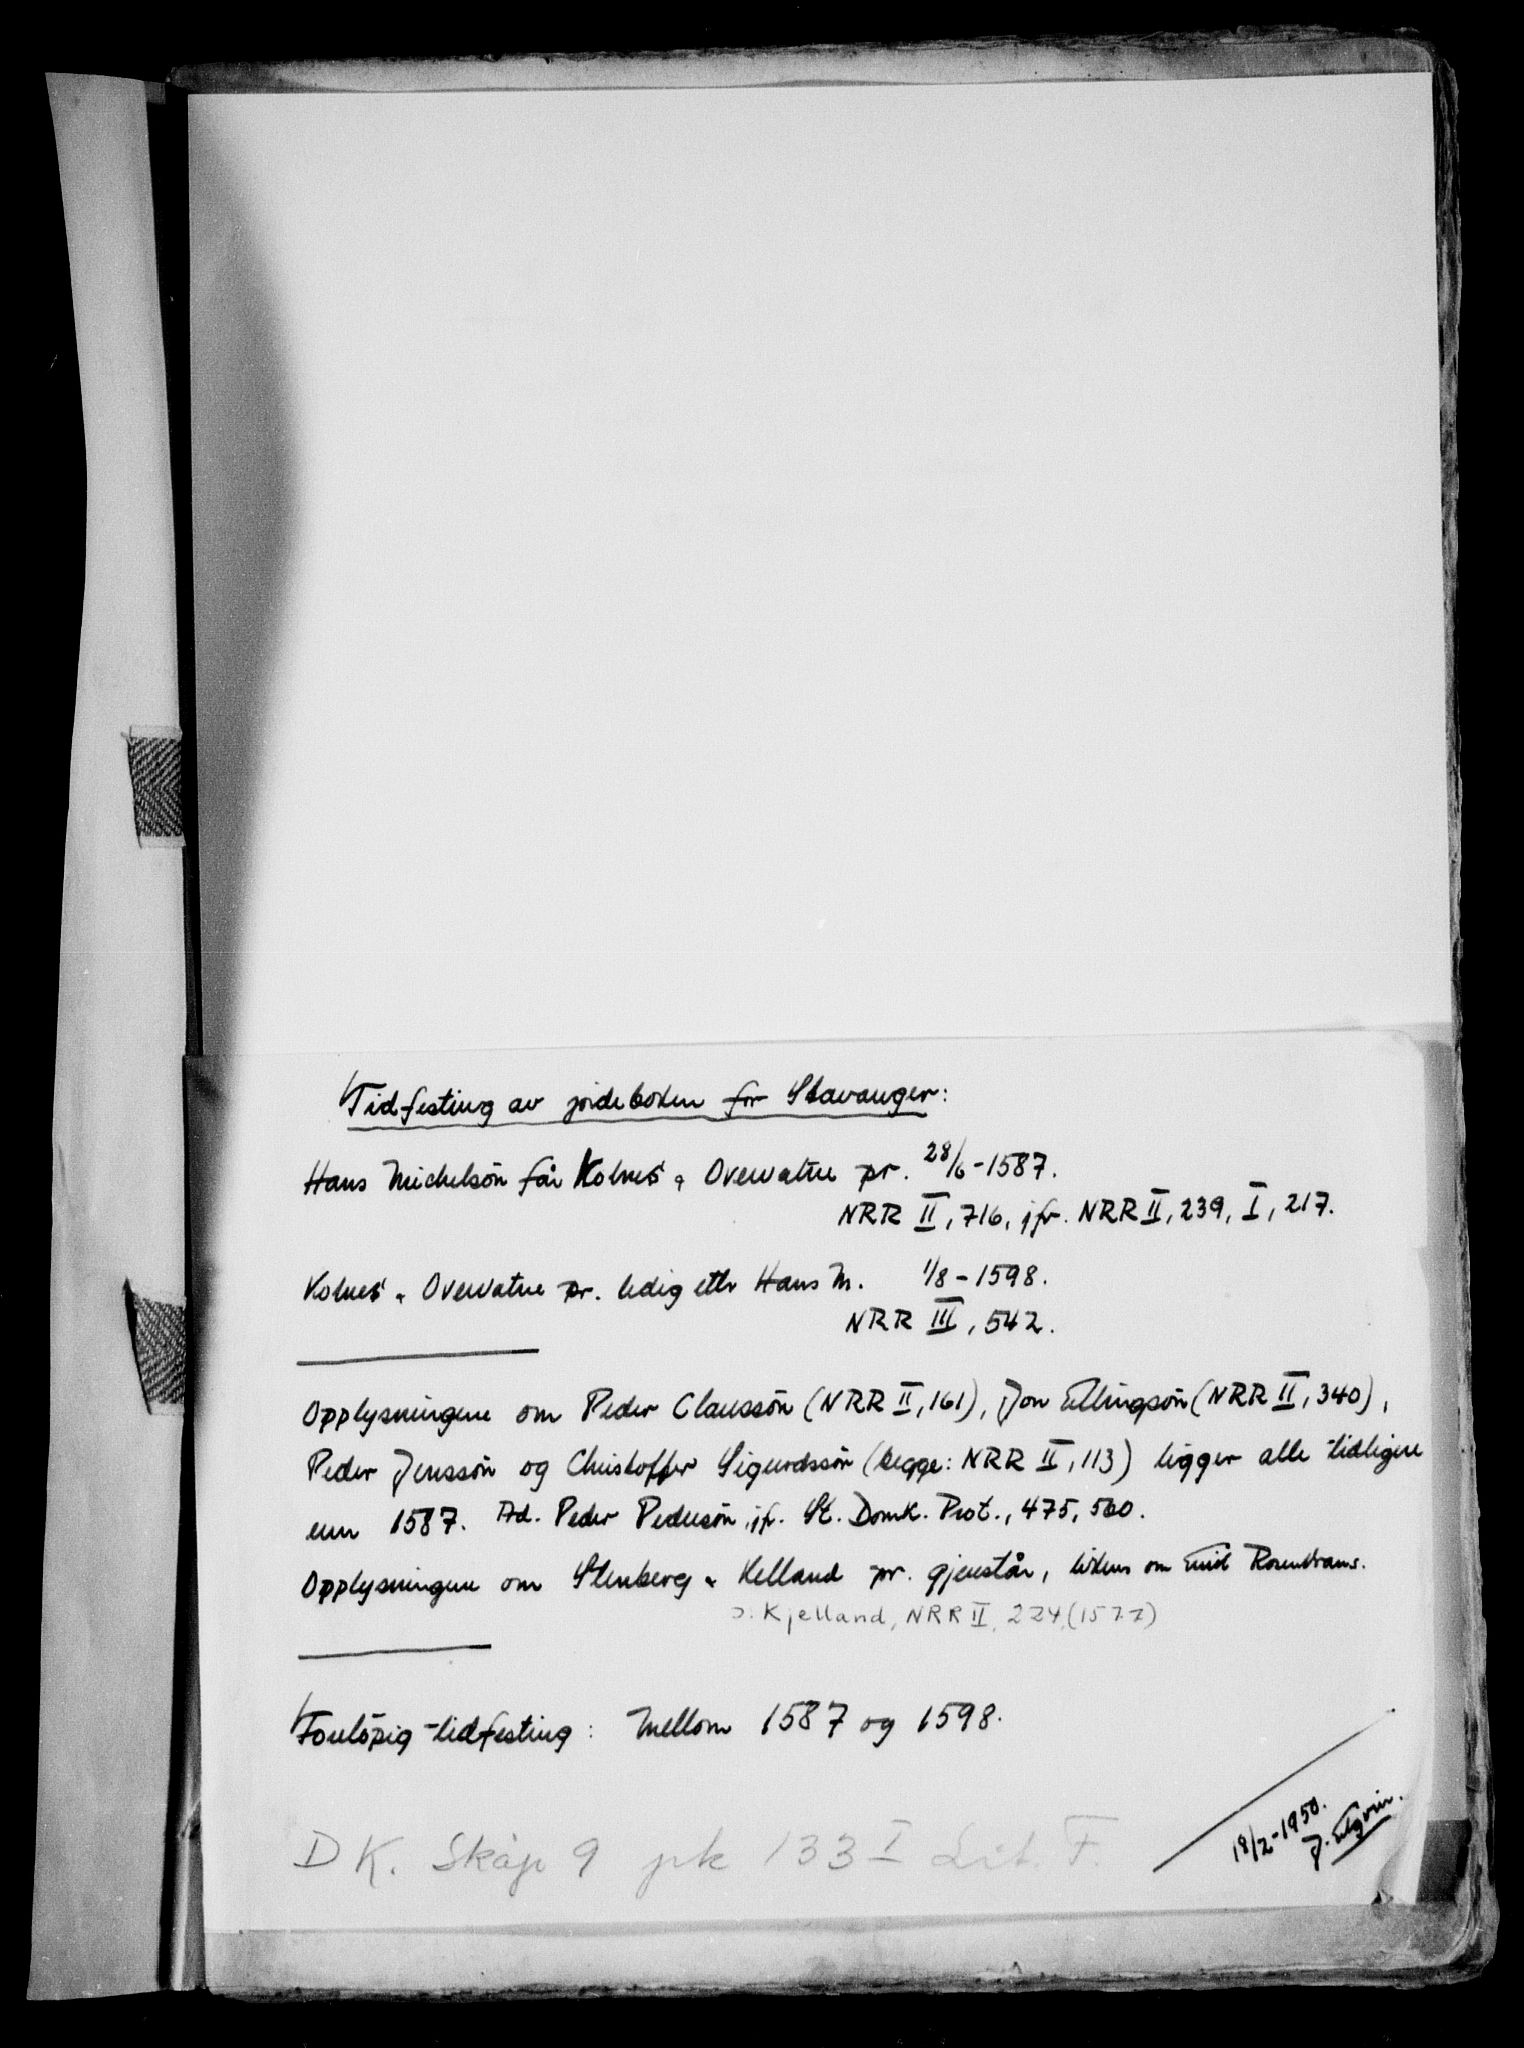 Tidfesting av jordeboken for Stavanger:
Hans Michelsön får Kolnes & Overvatne pr. 28/6-1587.
NRR II, 716, jfr. NRR II, 239, I, 217.
Kolnes & Overvatne pr. ledig ettr Hans M. 1/8-1598.
NRR III, 542.
Opplysningene om Peder Claussön (NRR II, 161), Jon Ellingsön (NRR II, 340),
Peder Jenssön og Christoffer Sigurdssön (begge: NRR II, 113) ligger alle tidligere
enn 1587. Ad. Peder Pedersön, jfr. St. Domk. Prot., 475, 560.
Opplysningene om Stenberg & Helland pr. gjenstår, likens om Enid Rosenkrans.
ɔ: Kjelland, NRR II, 224, (1577)
Forelöpig tidfesting: Mellom 1587 og 1598.
18/2-1950.
J.
DK. Skåp 9 pk 133 I Lit. F.